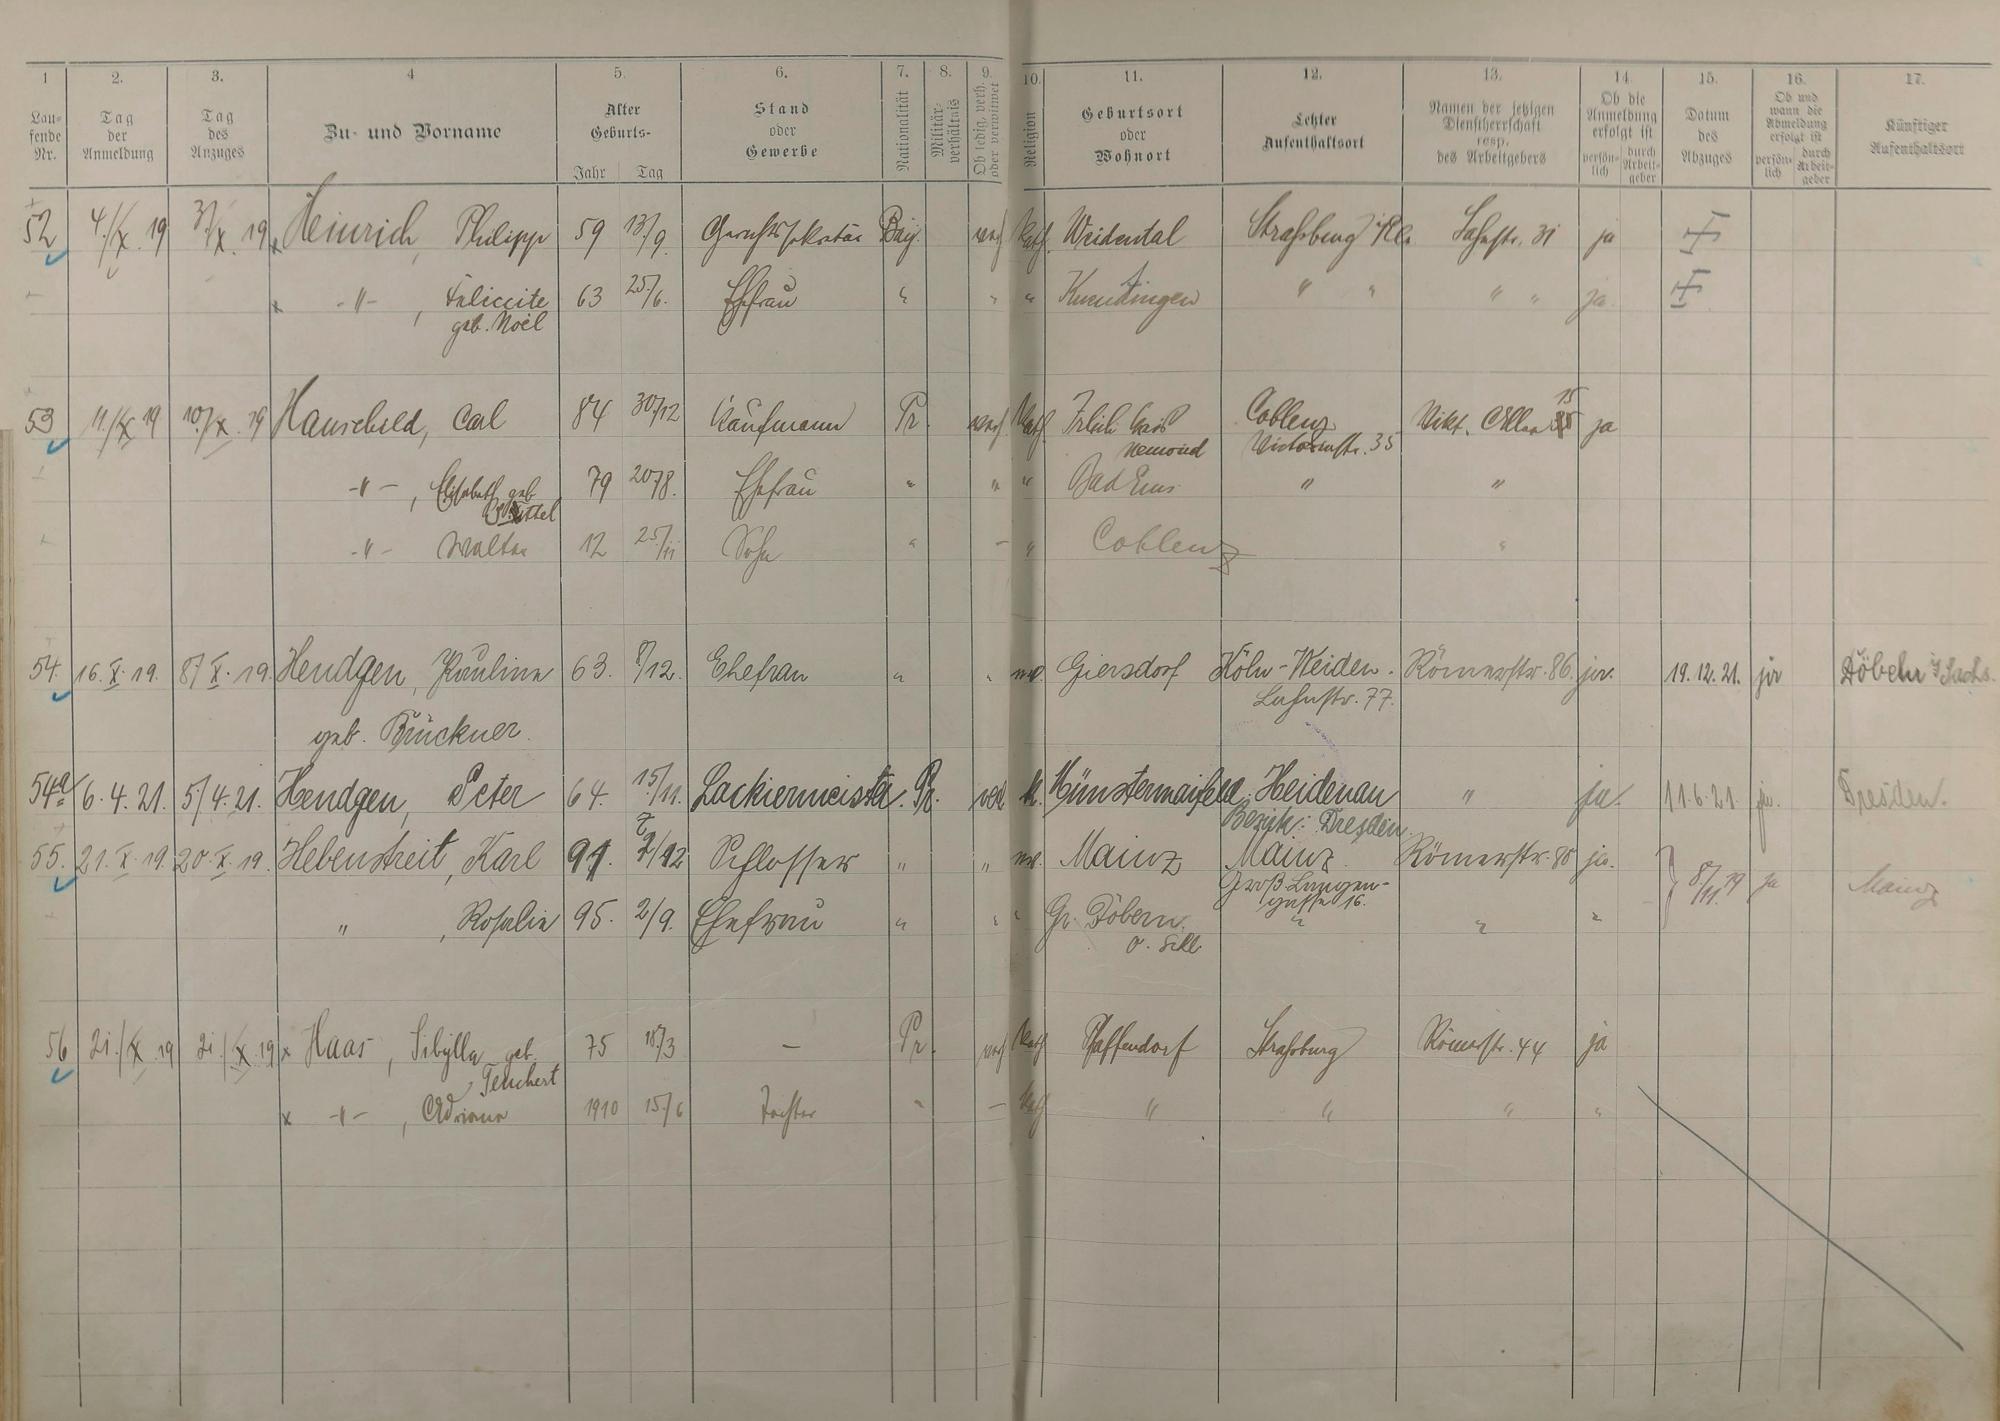 1 2. 3. 4 5. 6. 7. 8. 9. 10. 11. 12. 13. 14. 15. 16. 17.
Lau-
fende
Nr.
Tag
der
Anmeldung
Tag
des
Anzuges
Zu- und Vorname
Alter
Geburts-
Jahr Tag
Stand
oder
Gewerbe
Nationalität
Militär-
verhältnis
Ob ledig, verh.
oder verwitwet
Religion
Geburtsort
oder
Wohnort
Letzter
Aufenthaltsort
Namen der jetzigen
Dienstherrschaft
resp.
des Arbeitgebers
Ob die
Anmeldung
erfolgt ist
persön-
lich
durch
Arbeit-
geber
Datum
des
Abzuges
Ob und
wann die
Abmeldung
erfolgt ist
persön-
lich
durch
Arbeit-
geber
Künftiger
Aufenthaltsort
52 4./X. 19 3./X. 19 Heinrich, Philipp 59 13/9. Gerichtssekretär Bay. verh Kath. Weidental Strassburg i/Els. Lahnstr. 31 ja
-"- , Feliccite 63 25/6. Ehefrau " " " " " " " ja
geb. Noël
53 11./X 19 10./X. 19 Hauscheld, Carl 84 30/12 Kaufmann Pr. verh Kath. Irlich Kreis Coblenz Vikt. 15 ja
Neuwied Victoriastr. 35
-"- , Elisabeth geb. 79 20/8. Ehefrau " " " Bad Ems " "
-"- Walter 12 25/11 Sohn " - " Coblenz "
54. 16. X. 19. 8/X. 19. Hendgen, Pauline 63. 8/12. Ehefrau " " Giersdorf Köln-Weiden. Römerstr. 86. ja. 19.12.21. ja Döbeln i/Sachs.
geb. Brückner. Lahnstr. 77.
54a 6.4.21. 5/4.21. Hendgen, Peter 64. 15/11. Lackiermeister. Pr. verh. k. Münstermaifeld. Heidenau " ja. 11.6.21. ja. Dresden.
Bezirk: Dresden.
55. 21. X. 19. 20. X. 19. Hebenstreit, Karl 91. 2/12 Schlosser " " Mainz Mainz. Römerstr. 86 ja. 8/11.19 ja Mainz
Groß Langen-
gasse 16.
" , Rosalie 95. 2/9. Ehefrau " " " Gr. Döbern. " " "
O. Schl.
56 21./X. 19 21./X. 19 x Haas, Sibylla geb. 75 18/3 - Pr. verh Kath Pfaffendorf Strassburg Römerstr. 44 ja
Teuchert
x -"- , Adriana 1910 15/6 Tochter " - Kath " " " "